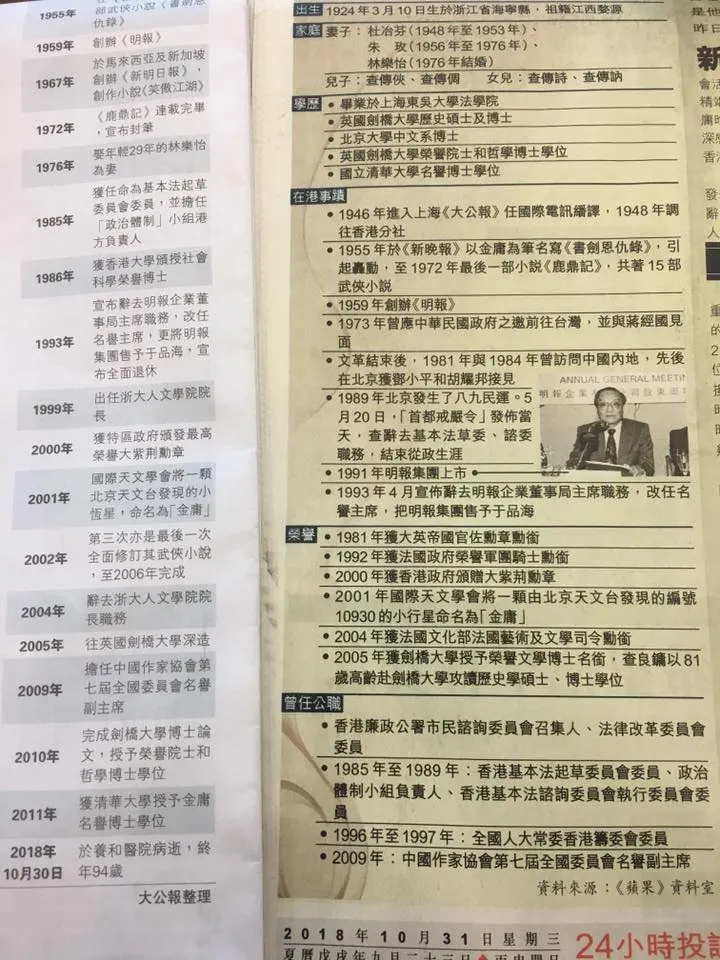 1955年
部武俠小說《書劍恩
仇錄》
1959年
創辦《明報》
1967年
於馬來西亞及新加坡
創辦《新明日報》，
創作小說《笑傲江湖》
1972年
《鹿鼎記》連載完畢
，宣布封筆
1976年
娶年輕29年的林樂怡
為妻
1985年
獲任命為基本法起草
委員會委員，並擔任
「政治體制」小組港
方負責人
1986年
獲香港大學頒授社會
科學榮譽博士
1993年
宣布辭去明報企業董
事局主席職務，改任
名譽主席，更將明報
集團售予于品海，宣
布全面退休
1999年
出任浙大人文學院院
長
2000年
獲特區政府頒發最高
榮譽大紫荊勳章
2001年
國際天文學會將一顆
北京天文台發現的小
恆星，命名為「金庸」
2002年
第三次亦是最後一次
全面修訂其武俠小說
，至2006年完成
2004年
辭去浙大人文學院院
長職務
2005年
往英國劍橋大學深造
2009年
擔任中國作家協會第
七屆全國委員會名譽
副主席
2010年
完成劍橋大學博士論
文，授予榮譽院士和
哲學博士學位
2011年
獲清華大學授予金庸
名譽博士學位
2018年
10月30日
於養和醫院病逝，終
年94歲
大公報整理
出生 1924年3月10日生於浙江省海寧縣，祖籍江西婺源
家庭 妻子：杜冶芬(1948年至1953年)、
朱 玫(1956年至1976年)、
林樂怡(1976年結婚)
兒子：查傳俠、查傳倜 女兒：查傳詩、查傳訥
學歷 • 畢業於上海東吳大學法學院
• 英國劍橋大學歷史碩士及博士
• 北京大學中文系博士
• 英國劍橋大學榮譽院士和哲學博士學位
• 國立清華大學名譽博士學位
在港事蹟
• 1946年進入上海《大公報》任國際電訊繙譯，1948年調
往香港分社
• 1955年於《新晚報》以金庸為筆名寫《書劍恩仇錄》，引
起轟動，至1972年最後一部小說《鹿鼎記》，共著15部
武俠小說
• 1959年創辦《明報》
• 1973年曾應中華民國政府之邀前往台灣，並與蔣經國見
面
• 文革結束後，1981年與1984年曾訪問中國內地，先後
在北京獲鄧小平和胡耀邦接見
• 1989年北京發生了八九民運。5
月20日，「首都戒嚴令」發佈當
天，查辭去基本法草委、諮委
職務，結束從政生涯
ANNUAL GENERAL MEETIN
• 1991年明報集團上市
• 1993年4月宣佈辭去明報企業董事局主席職務，改任名
譽主席，把明報集團售予于品海
榮譽 • 1981年獲大英帝國官佐勳章勳銜
• 1992年獲法國政府榮譽軍團騎士勳銜
• 2000年獲香港政府頒贈大紫荊勳章
• 2001年國際天文學會將一顆由北京天文台發現的編號
10930的小行星命名為「金庸」
• 2004年獲法國文化部法國藝術及文學司令勳銜
• 2005年獲劍橋大學授予榮譽文學博士名銜，查良鏞以81
歲高齡赴劍橋大學攻讀歷史學碩士、博士學位
曾任公職
• 香港廉政公署市民諮詢委員會召集人、法律改革委員會
委員
• 1985年至1989年：香港基本法起草委員會委員、政治
體制小組負責人、香港基本法諮詢委員會執行委員會委
員
• 1996年至1997年：全國人大常委香港籌委會委員
• 2009年：中國作家協會第七屆全國委員會名譽副主席
資料來源：《蘋果》資料室
2018年10月31日星期三
夏曆戊戌年九月二十三日
24小時投訴